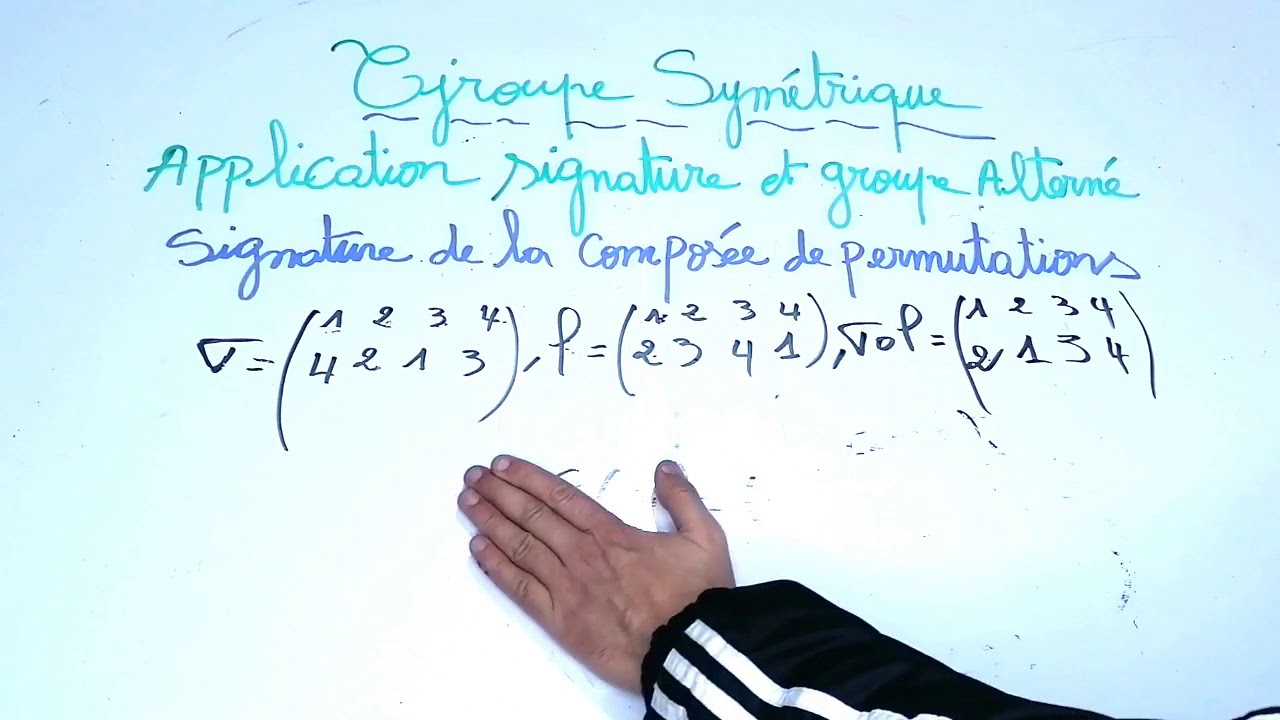 Groupe Symétrique
Application signature et groupe Alterné
Signature de la composée de permutations
σ = (1 2 3 4
4 2 1 3), ρ = (1 2 3 4
2 3 4 1), σoρ = (1 2 3 4
2 1 3 4)